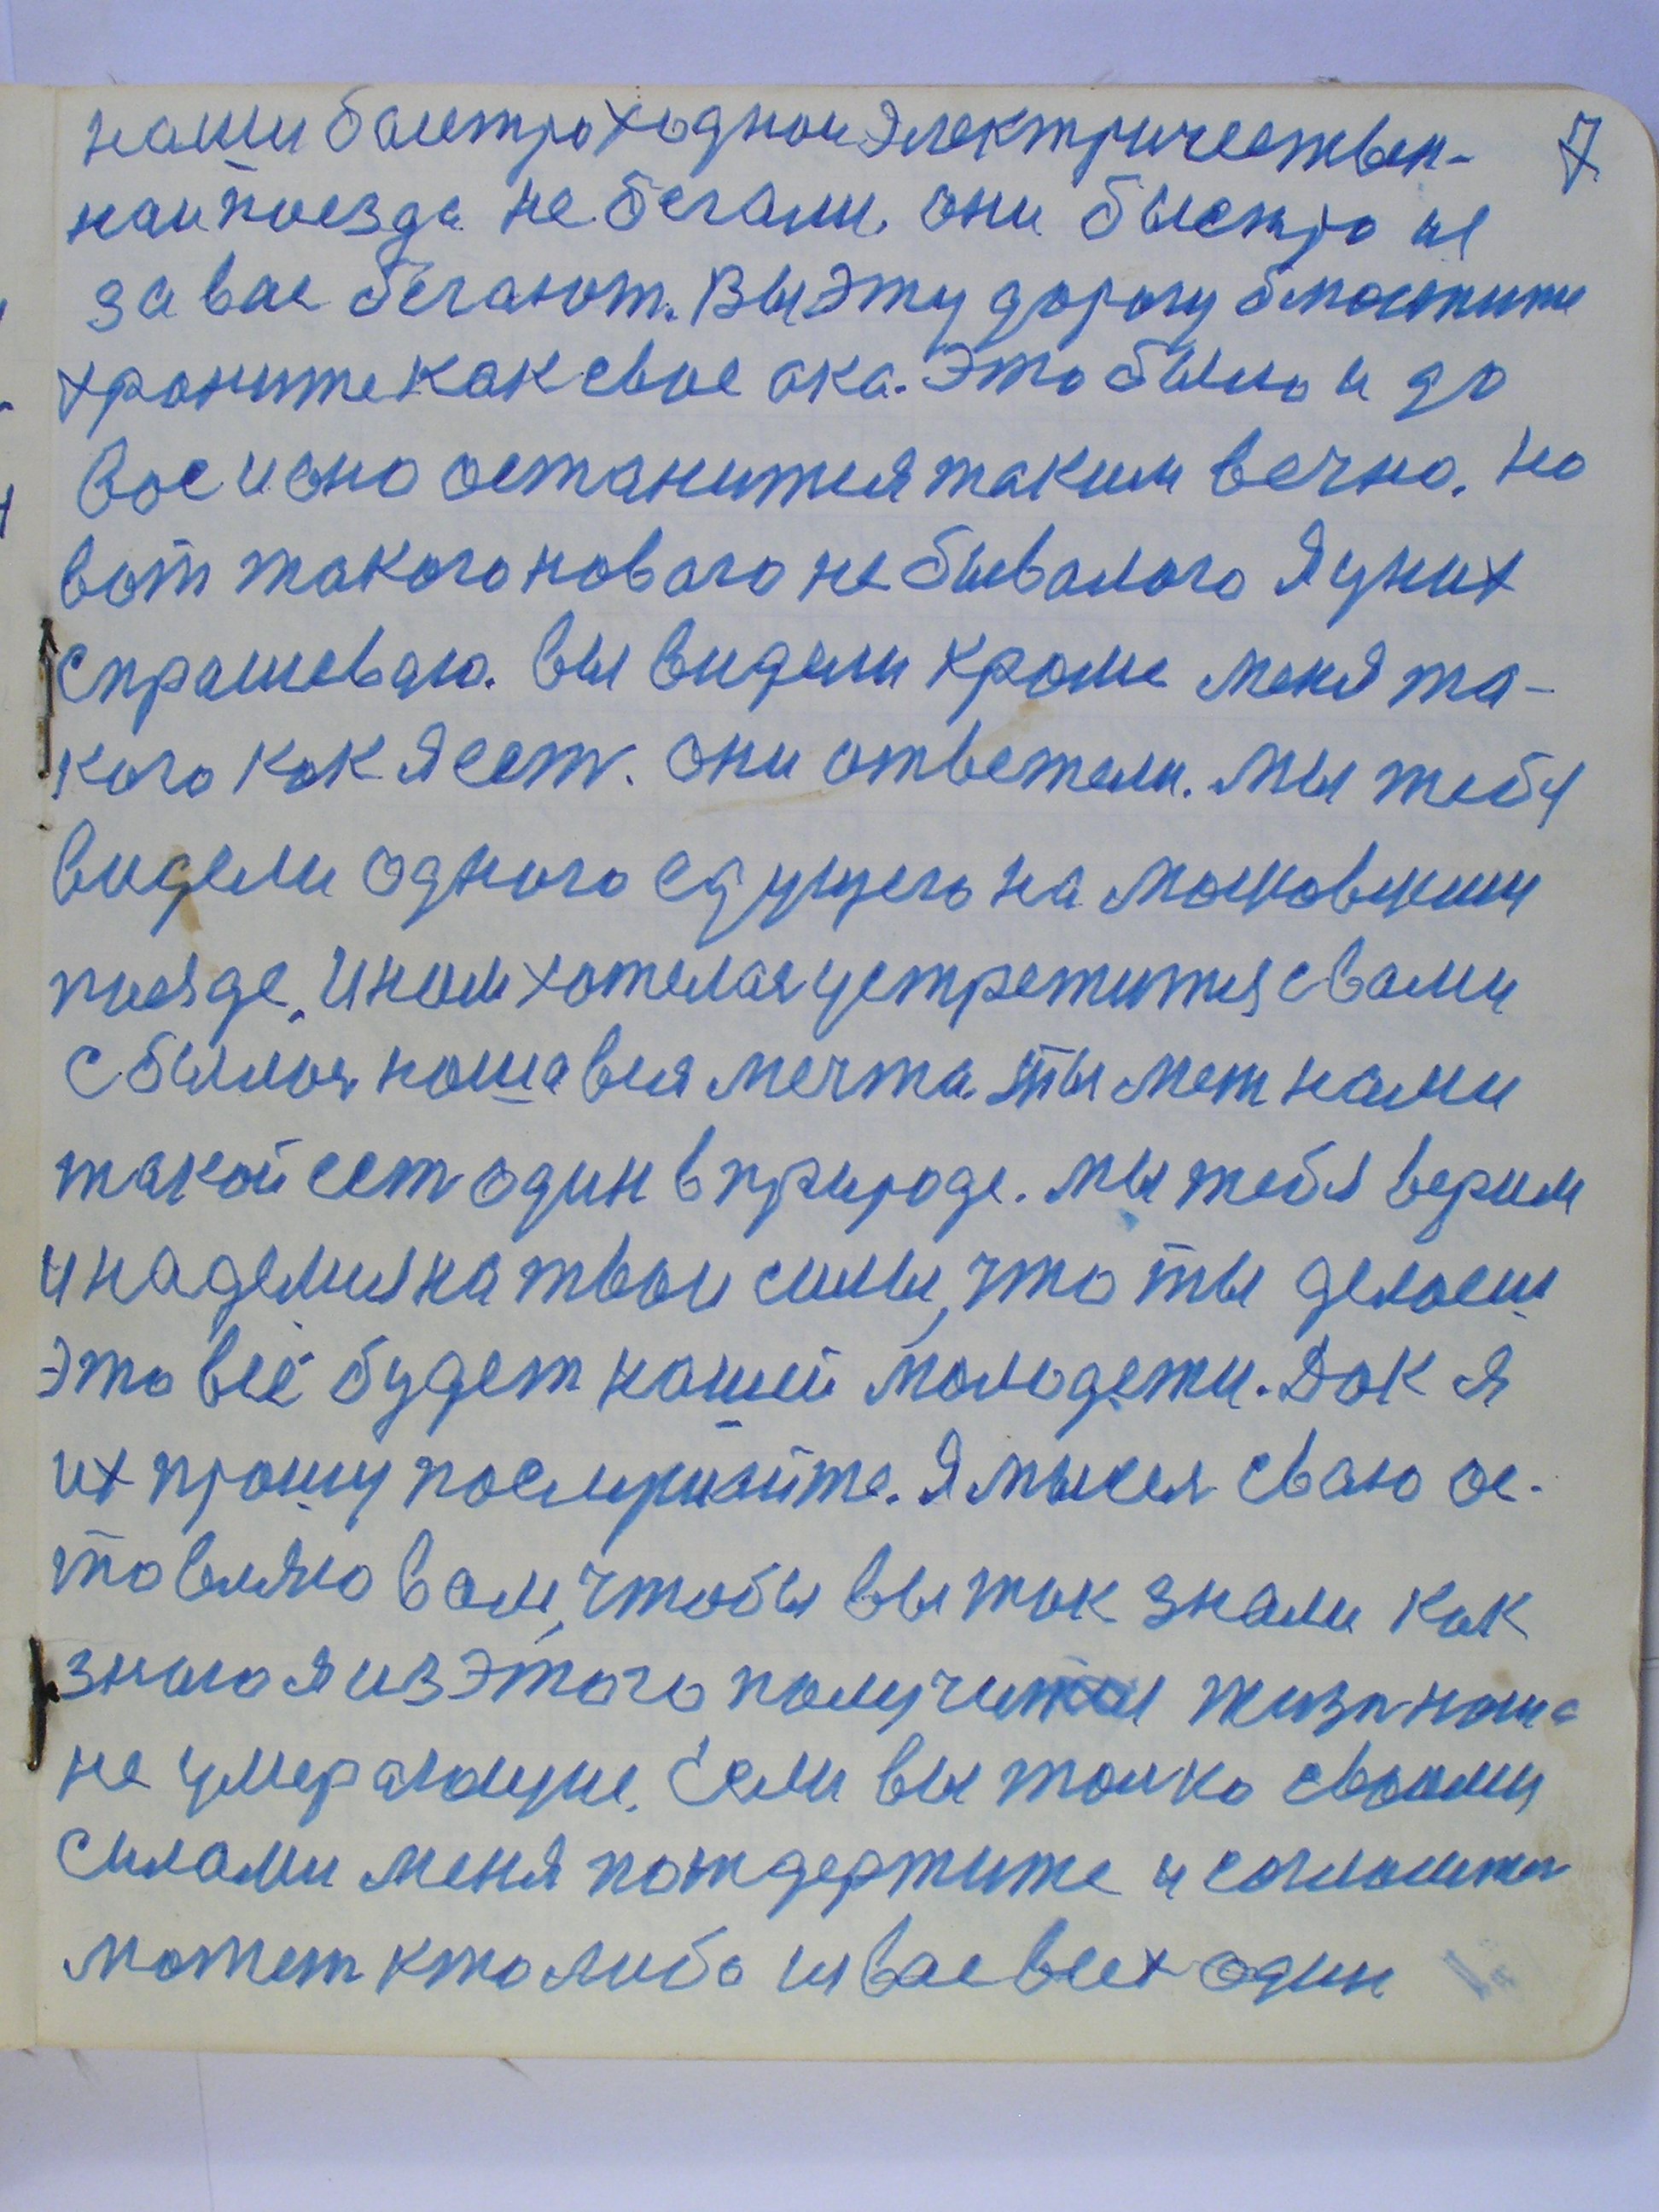 7
наши быстроходнои электричествен-
наи поезда не бегали. они быстро из
за вас бегают. Вы эту дорогу блюстити
храните как свое ока. Это было и до
Вас и оно останится таким вечно. но
вот такого новаго не бывалого Я у них
спрашеваю. Вы видели кроме меня та-
кого как Я есть. они ответели. мы тебя
видели одного едущего на московским
поезде. И нам хотелася устретится с вами
сбылася наша вся мечта. ты меж нами
такой есть один в природе. мы тебя верим
и надемся на твои силы, что ты делаеш
это всё будет нашей молодежи. Дак я
их прошу послушайте. Я мысль сваю ос-
тавляю вам, чтобы вы так знали как
знаю я из этого получится жизн наша
не умерающие. Если вы толко своими
силами меня пождержите и согласитесь
может кто либо из вас всех один